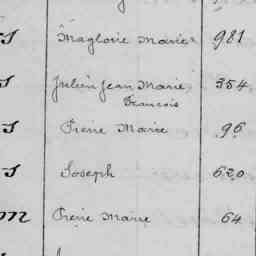 S Magloire Marie 981
S Julien Jean Marie 354
Francois
S Pierre Marie 96
S Joseph 620
m Pierre Marie 64